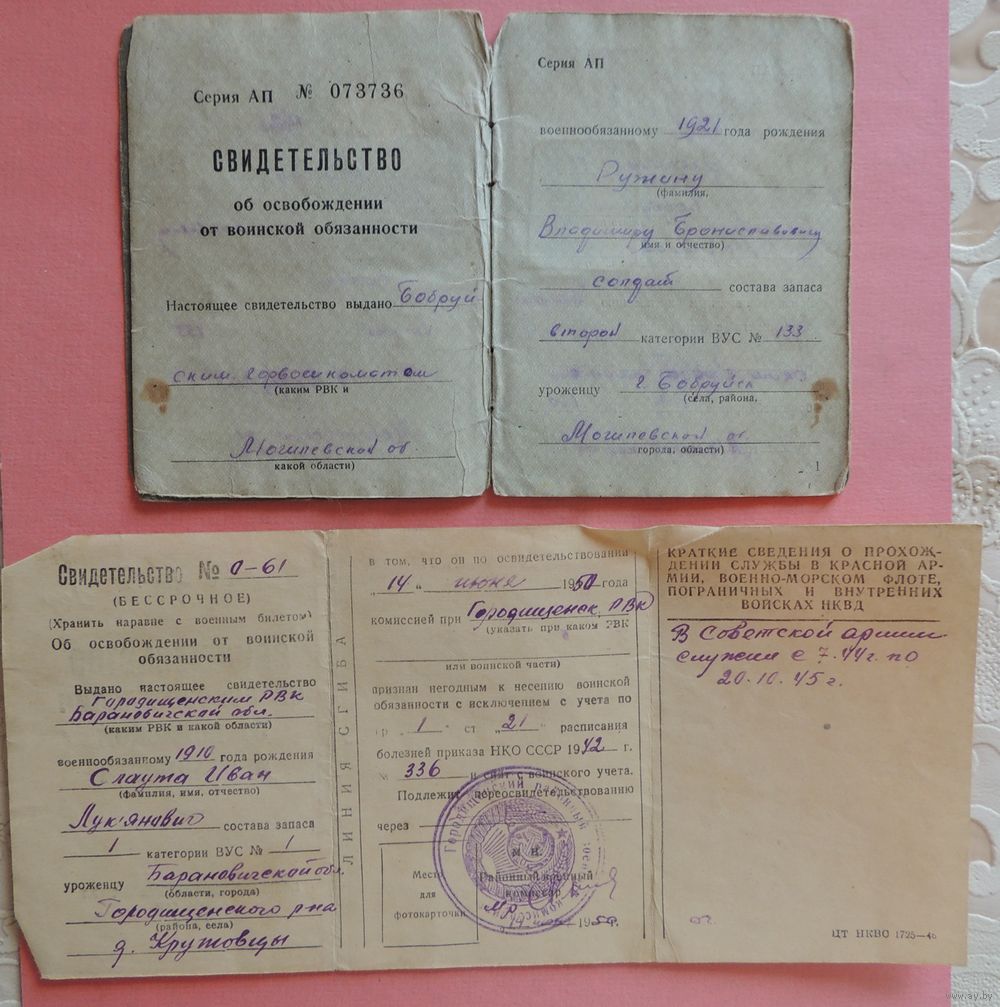 Серия АП № 073736
СВИДЕТЕЛЬСТВО
об освобождении
от воинской обязанности
Настоящее свидетельство выдано Бобруй
ским горвоенкоматом
(каким РВК и
Могилевской об.
какой области)
Серия АП
военнообязанному 1921 года рождения
Ружину
(фамилия,
Владимиру Брониславовичу
имя и отчество)
солдат состава запаса
второй категории ВУС № 133
уроженцу г. Бобруйск
(села, района,
Могилевской об.
города, области)
1
Свидетельство № 0-61
(БЕССРОЧНОЕ)
(Хранить наравне с военным билетом)
Об освобождении от воинской
обязанности
Выдано настоящее свидетельство
Городищенским РВК
Барановичской обл.
(каким РВК и какой области)
военнообязанному 1910 года рождения
Слаута Иван
(фамилия, имя, отчество)
Лукянович состава запаса
1 категории ВУС № 1
уроженцу Барановичской обл.
(области, города)
Городищенского р-на
(района, села)
д. Кружовцы
ЛИНИЯ СГИБА
в том, что он по освидетельствовании
"14" июня 1950 года
комиссией при Городищенск. РВК
(указать при каком РВК
или воинской части)
признан негодным к несению воинской
обязанности с исключением с учета по
гр 1 ст "21" расписания
болезней приказа НКО СССР 1942 г.
№ 336 и снят с воинского учета.
Подлежит переосвидетельствованию
через
Место
для
фотокарточки
М. П.
Районный военный
комиссар
КРАТКИЕ СВЕДЕНИЯ О ПРОХОЖ-
ДЕНИИ СЛУЖБЫ В КРАСНОЙ АР-
МИИ, ВОЕННО-МОРСКОМ ФЛОТЕ,
ПОГРАНИЧНЫХ И ВНУТРЕННИХ
ВОЙСКАХ НКВД
В Советской армии
служил с 7.44г. по
20.10.45г.
ЦТ НКВС 1725—46
www.ay.by